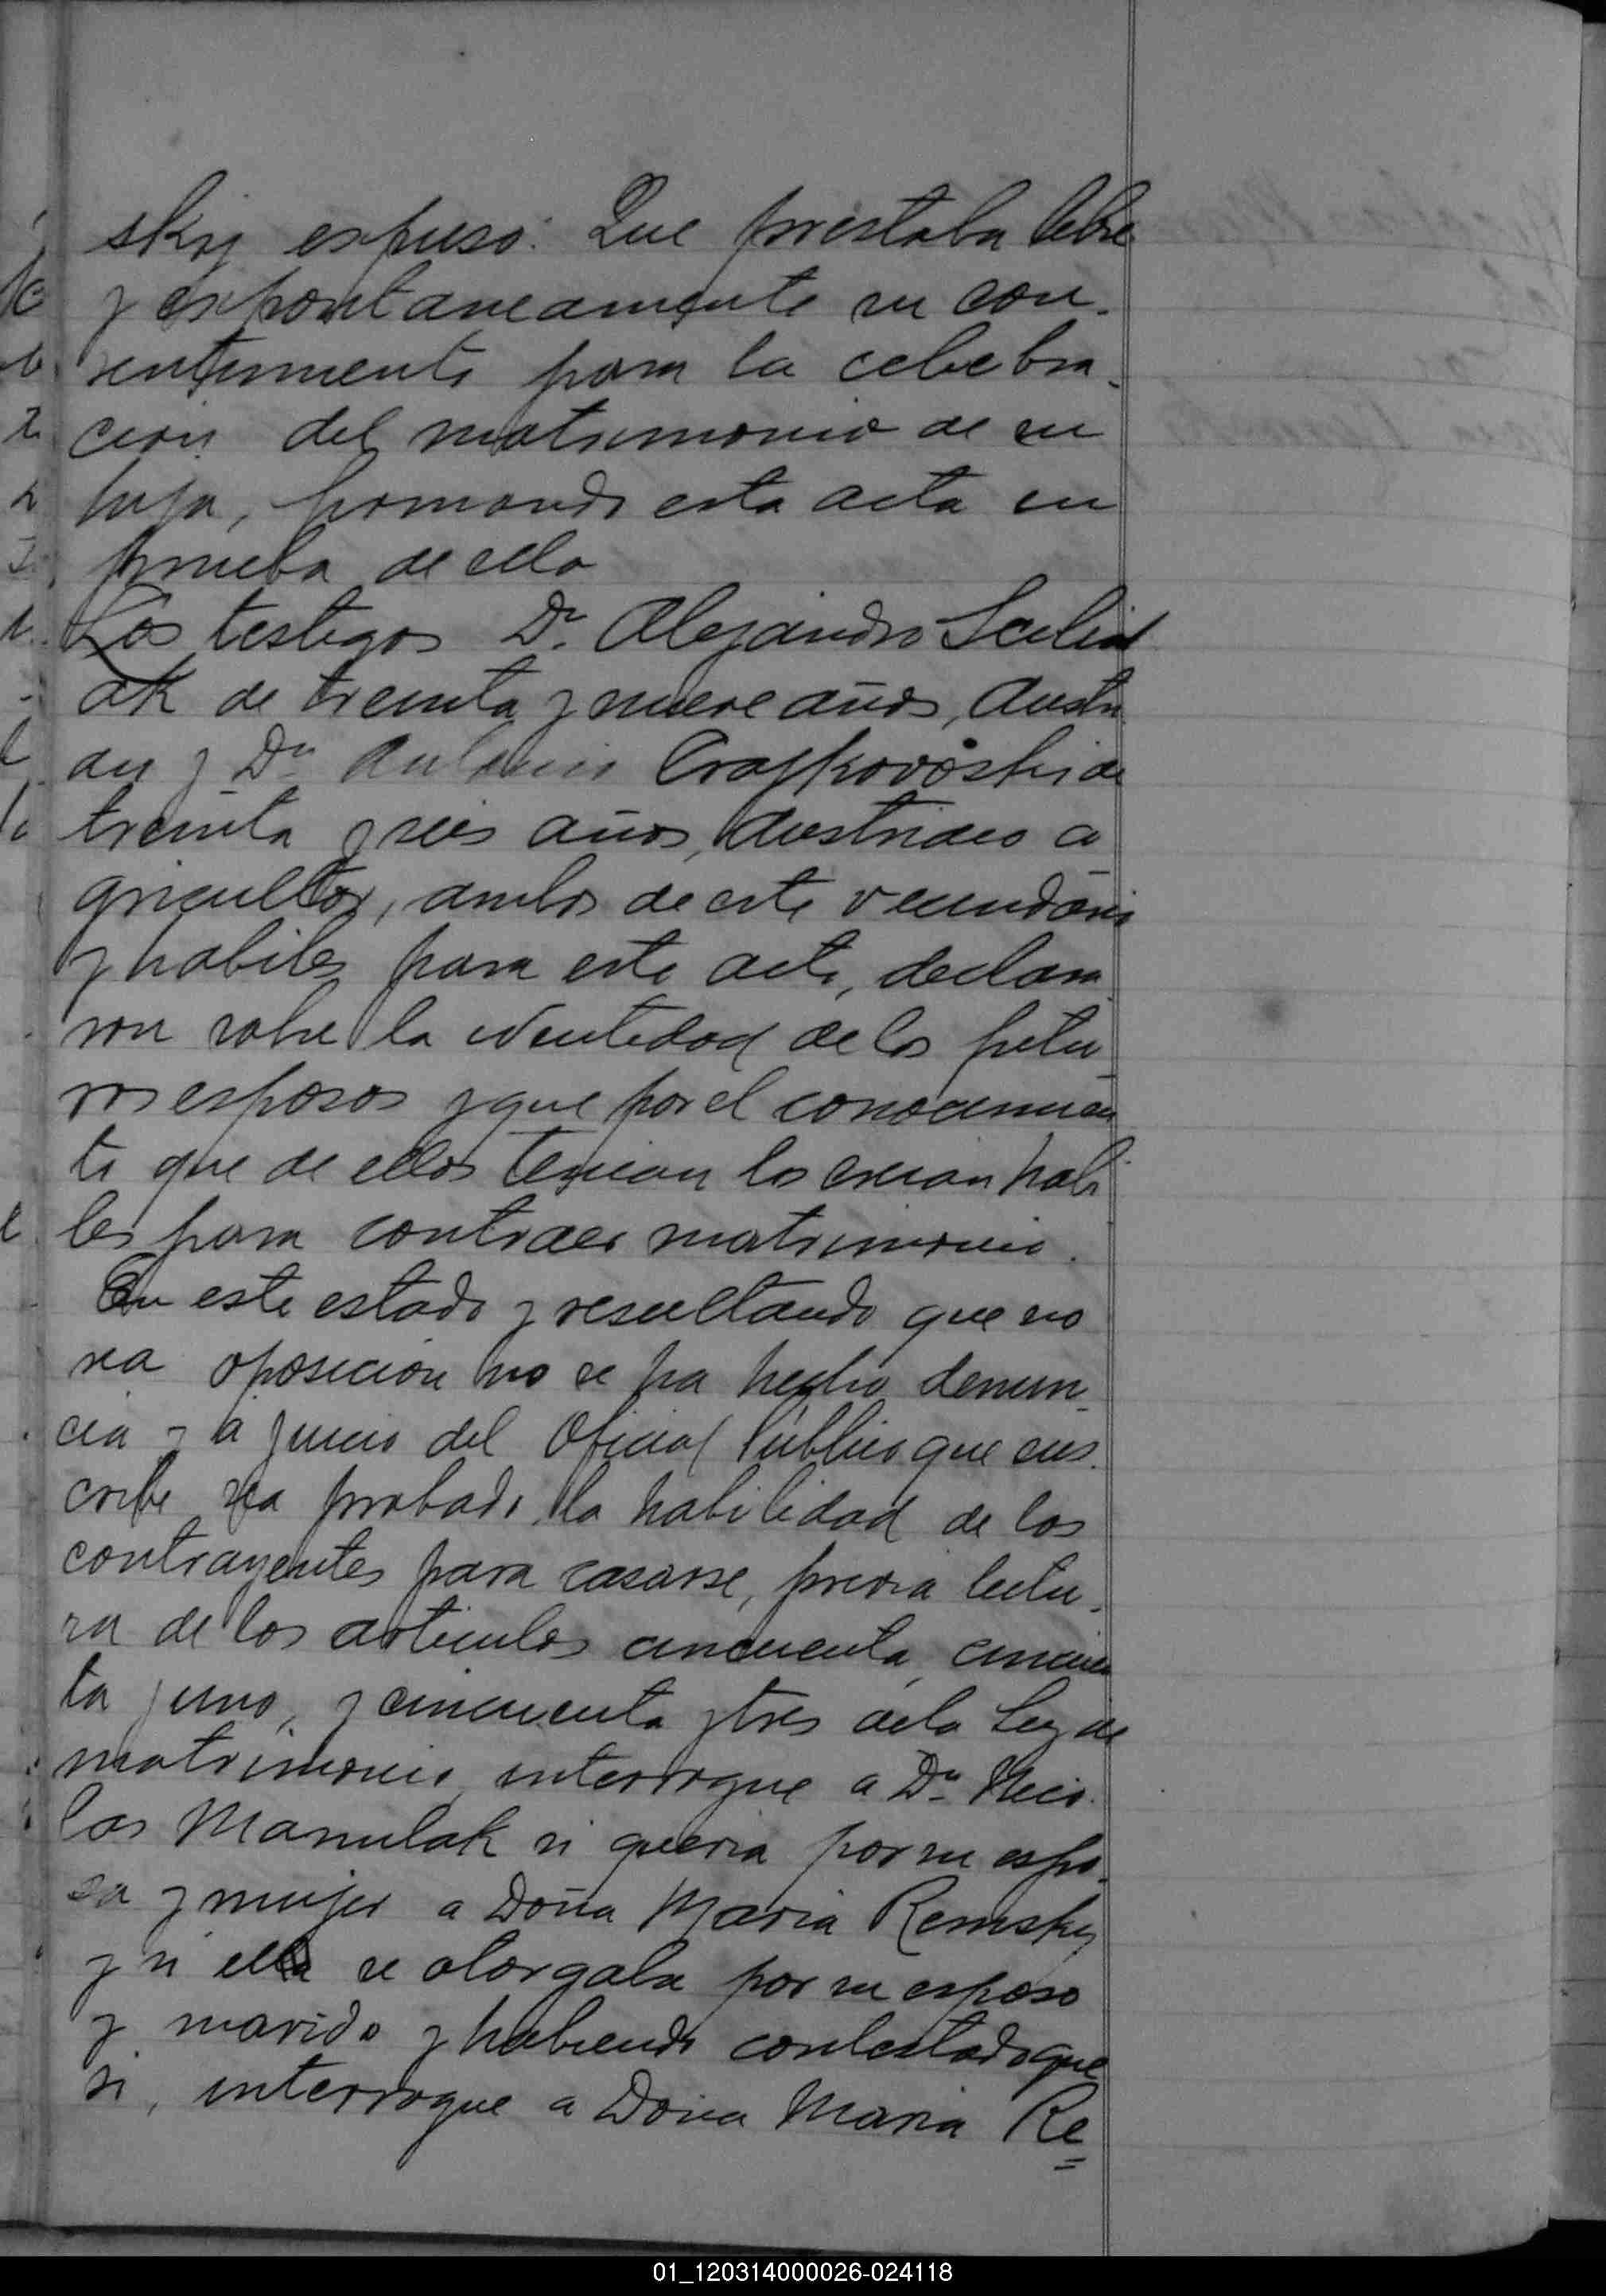 skij espuso: Que prestaba libre
y espontaneamente su con-
sentimiento para la celebra-
cion del matrimonio de su
hija, firmando esta acta en
prueba de ello
Los testigos Dn. Alejandro
ak de treinta y nueve años, Austri
an y Dn Antonio de
treinta y seis años, Austriaco a
gricultor, ambos de este vecindario
y habiles para este acto, declara
ron sobre la identidad de los futu
ros esposos y que por el conocimien
to que de ellos tenian los creian habi
les para contraer matrimonio.
En este estado y resultando que no
sea oposicion no se ha hecho denun-
cia y a juicio del Oficial Público que sus-
cribe sea probado la habilidad de los
contrayentes para casarse, previa lectu-
ra de los articulos cincuenta, cincuen
ta y uno, y cincuenta y tres de la Ley de
matrimonio, interrogue a Dn Nico-
las Manulak si queria por su espo-
sa y mujer a Doña Maria Remsky
y si ella se otorgaba por su esposo
y marido y habiendo contestado que
si, interrogue a Doña Maria Re=
01_120314000026-024118